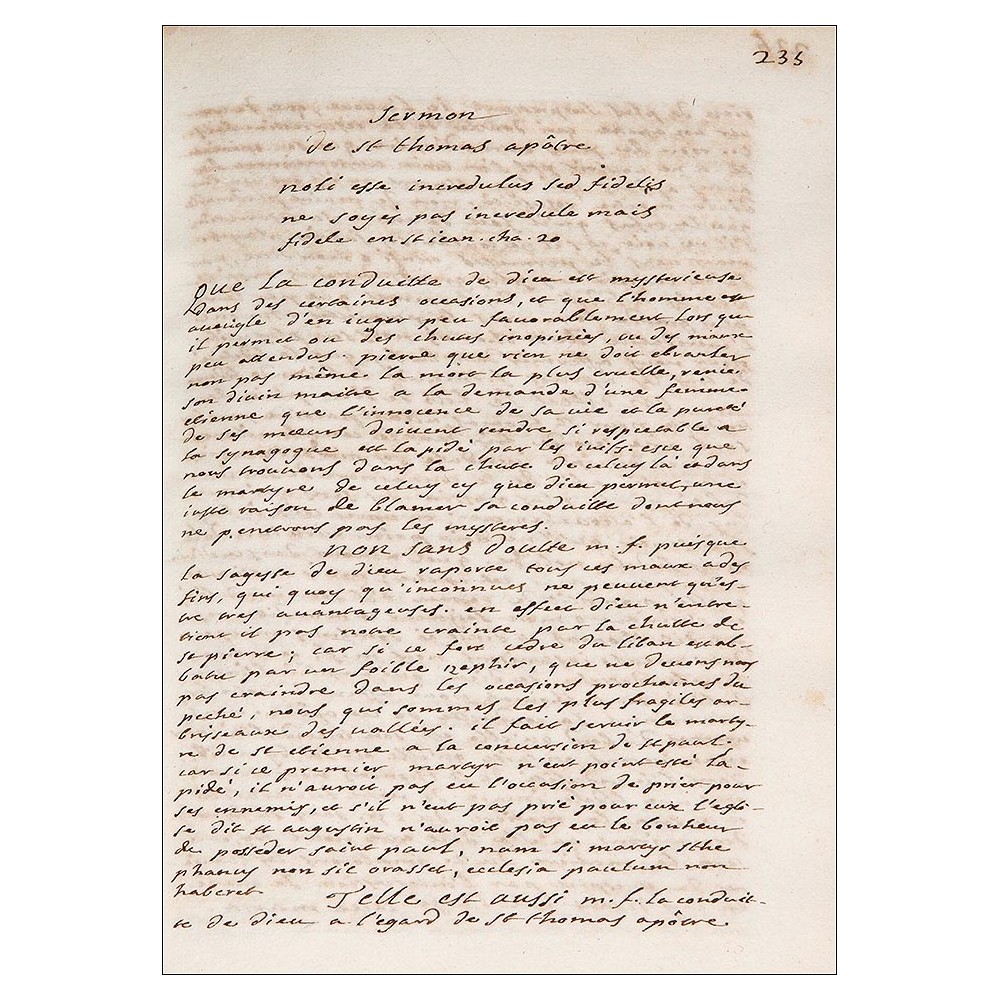 235
Sermon
de st thomas apôtre
noli esse incredulus sed fidelis
ne soyés pas incredule mais
fidele en st iean . cha . 20
que la conduitte de dieu est mysterieuse
dans des certaines occasions, et que l'homme est
aveugle d'en iuger peu favorablement lors qu
il permet ou des chutes inopinées, ou des maux
peu attendus . pierre que rien ne doit ebranler
non pas même la mort la plus cruelle, renie
son divin maitre a la demande d'une femme
etienne que l'innocence de sa vie et la pureté
de ses mœurs doivent rendre si respectable a
la synagogue est lapidé par les iuifs . esce que
nous trouvons dans la chute de celuy la et dans
le martyre de celuy cy que dieu permet, une
iuste raison de blamer sa conduitte dont nous
ne penetrons pas les mysteres .
non sans doutte m . f . puisque
la sagesse de dieu raporte tous ces maux a des
fins, qui quoy qu'inconnues ne peuvent qu'es-
tre tres avantageuses . en effect dieu n'entre-
tient il pas notre crainte par la chutte de
st pierre ; car si ce fort cedre du liban est ab-
batu par un foible zephir, que ne devons nous
pas craindre dans les occasions prochaines du
peché, nous qui sommes les plus fragiles ar-
brisseaux des vallées . il fait servir le marty-
re de st etienne a la conversion de st paul .
car si ce premier martyr n'eut point esté la-
pidé, il n'auroit pas eu l'occasion de prier pour
ses ennemis, et s'il n'eut pas prié pour eux l'egli-
se dit st augustin n'auroit pas eu le bonheur
de posseder saint paul, nam si martyr ste
phanus non sic orasset, ecclesia paulum non
haberet
Telle est aussi m . f . la conduit-
te de dieu a l'egard de st thomas apôtre .